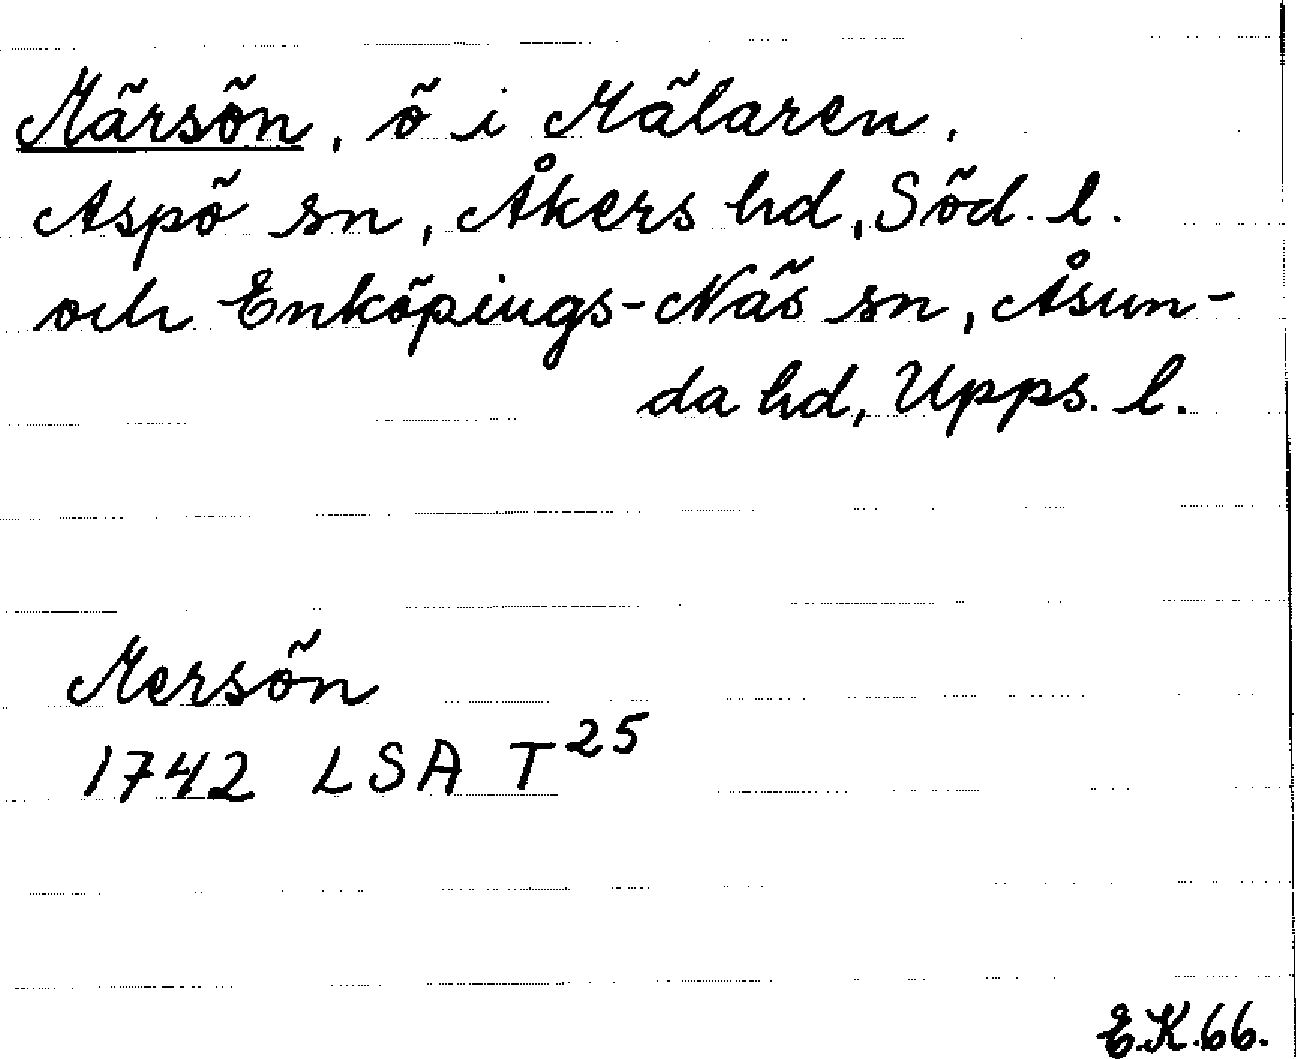 Märsön, ö i Mälaren.
Aspö sn, Åkers hd, Söd. l.
och Enköpings-Näs sn, Åsun-
da hd, Upps. l.
Mersön
1742 LSA T²⁵
E.K.66.